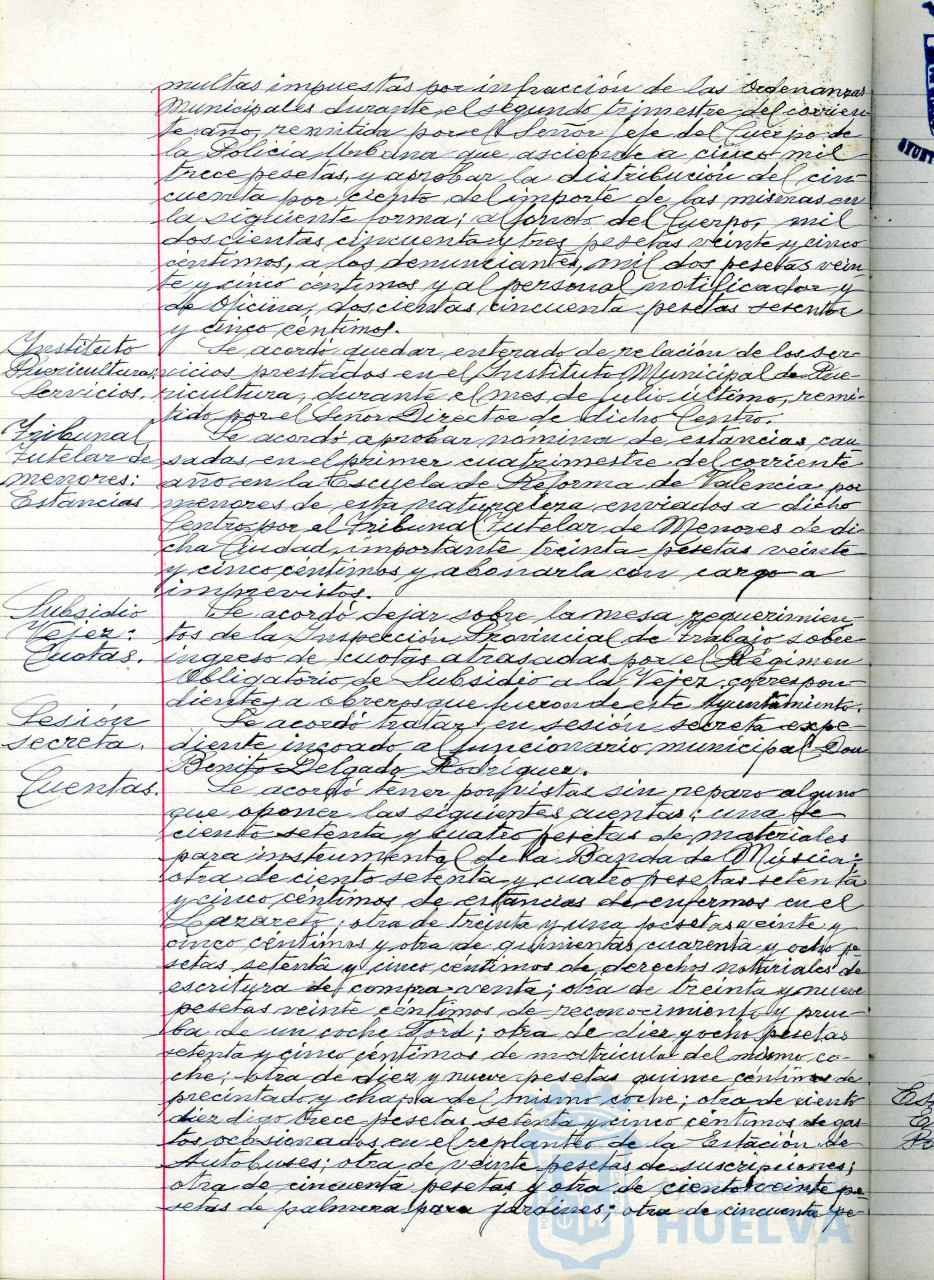 multas impuestas por infracción de las Ordenanzas
Municipales durante el segundo trimestre del corrien-
te año, remitida por el Señor Jefe del Cuerpo de
la Policía Urbana que asciende a cinco mil
trece pesetas, y aprobar la distribución del cin-
cuenta por ciento del importe de las mismas en
la siguiente forma; al fondo del Cuerpo, mil
doscientas cincuenta y tres pesetas veinte y cinco
céntimos, a los denunciantes, mil dos pesetas vein-
te y cinco céntimos y al personal notificador y
de Oficina, doscientas cincuenta pesetas sesenta
y cinco céntimos.
Instituto
Puericultura:
Servicios.
Se acordó quedar enterado de relación de los ser-
vicios prestados en el Instituto Municipal de Pue-
ricultura, durante el mes de Julio último, remi-
tido por el Señor Director de dicho Centro.
Tribunal
Tutelar de
menores:
Estancias
Se acordó aprobar nomina de estancias cau-
sadas en el primer cuatrimestre del corriente
año, en la Escuela de Reforma de Valencia por
menores de esta naturaleza enviados a dicho
Centro por el Tribunal Tutelar de Menores de di-
cha Ciudad, importante treinta pesetas veinte
y cinco céntimos y abonarla con cargo a
imprevistos.
Subsidio
Vejez:
Cuotas.
Se acordó dejar sobre la mesa requerimien-
tos de la Inspección Provincial de Trabajo sobre
ingreso de cuotas atrasadas por el Régimen
Obligatorio de Subsidio a la Vejez, correspon-
dientes a obreros que fueron de este Ayuntamiento.
Sesión
secreta.
Se acordó tratar en sesión secreta expe-
diente incoado al funcionario municipal Don
Benito Delgado Rodríguez.
Cuentas.
Se acordó tener por vistas sin reparo alguno
que oponer las siguientes cuentas: una de
ciento setenta y cuatro pesetas de materiales
para instrumental de la Banda de Música;
otra de ciento setenta y cuatro pesetas setenta
y cinco céntimos de estancias de enfermos en el
Lazareto; otra de treinta y una pesetas veinte y
cinco céntimos y otra de quinientas cuarenta y ocho pe-
setas setenta y cinco céntimos de derechos notariales de
escritura de compra-venta; otra de treinta y nueve
pesetas veinte céntimos de reconocimiento y prue-
ba de un coche Ford; otra de diez y ocho pesetas
setenta y cinco céntimos de matrícula del mismo co-
che; otra de diez y nueve pesetas quince céntimos de
precintado y chapa del mismo coche; otra de ciento
diez digo trece pesetas setenta y cinco céntimos de gas-
tos ocasionados en el replanteo de la Estación de
Autobuses; otra de veinte pesetas de suscripciones;
otra de cincuenta pesetas y otra de ciento veinte pe-
setas de palmera para jardines; otra de cincuenta pe-
HUELVA